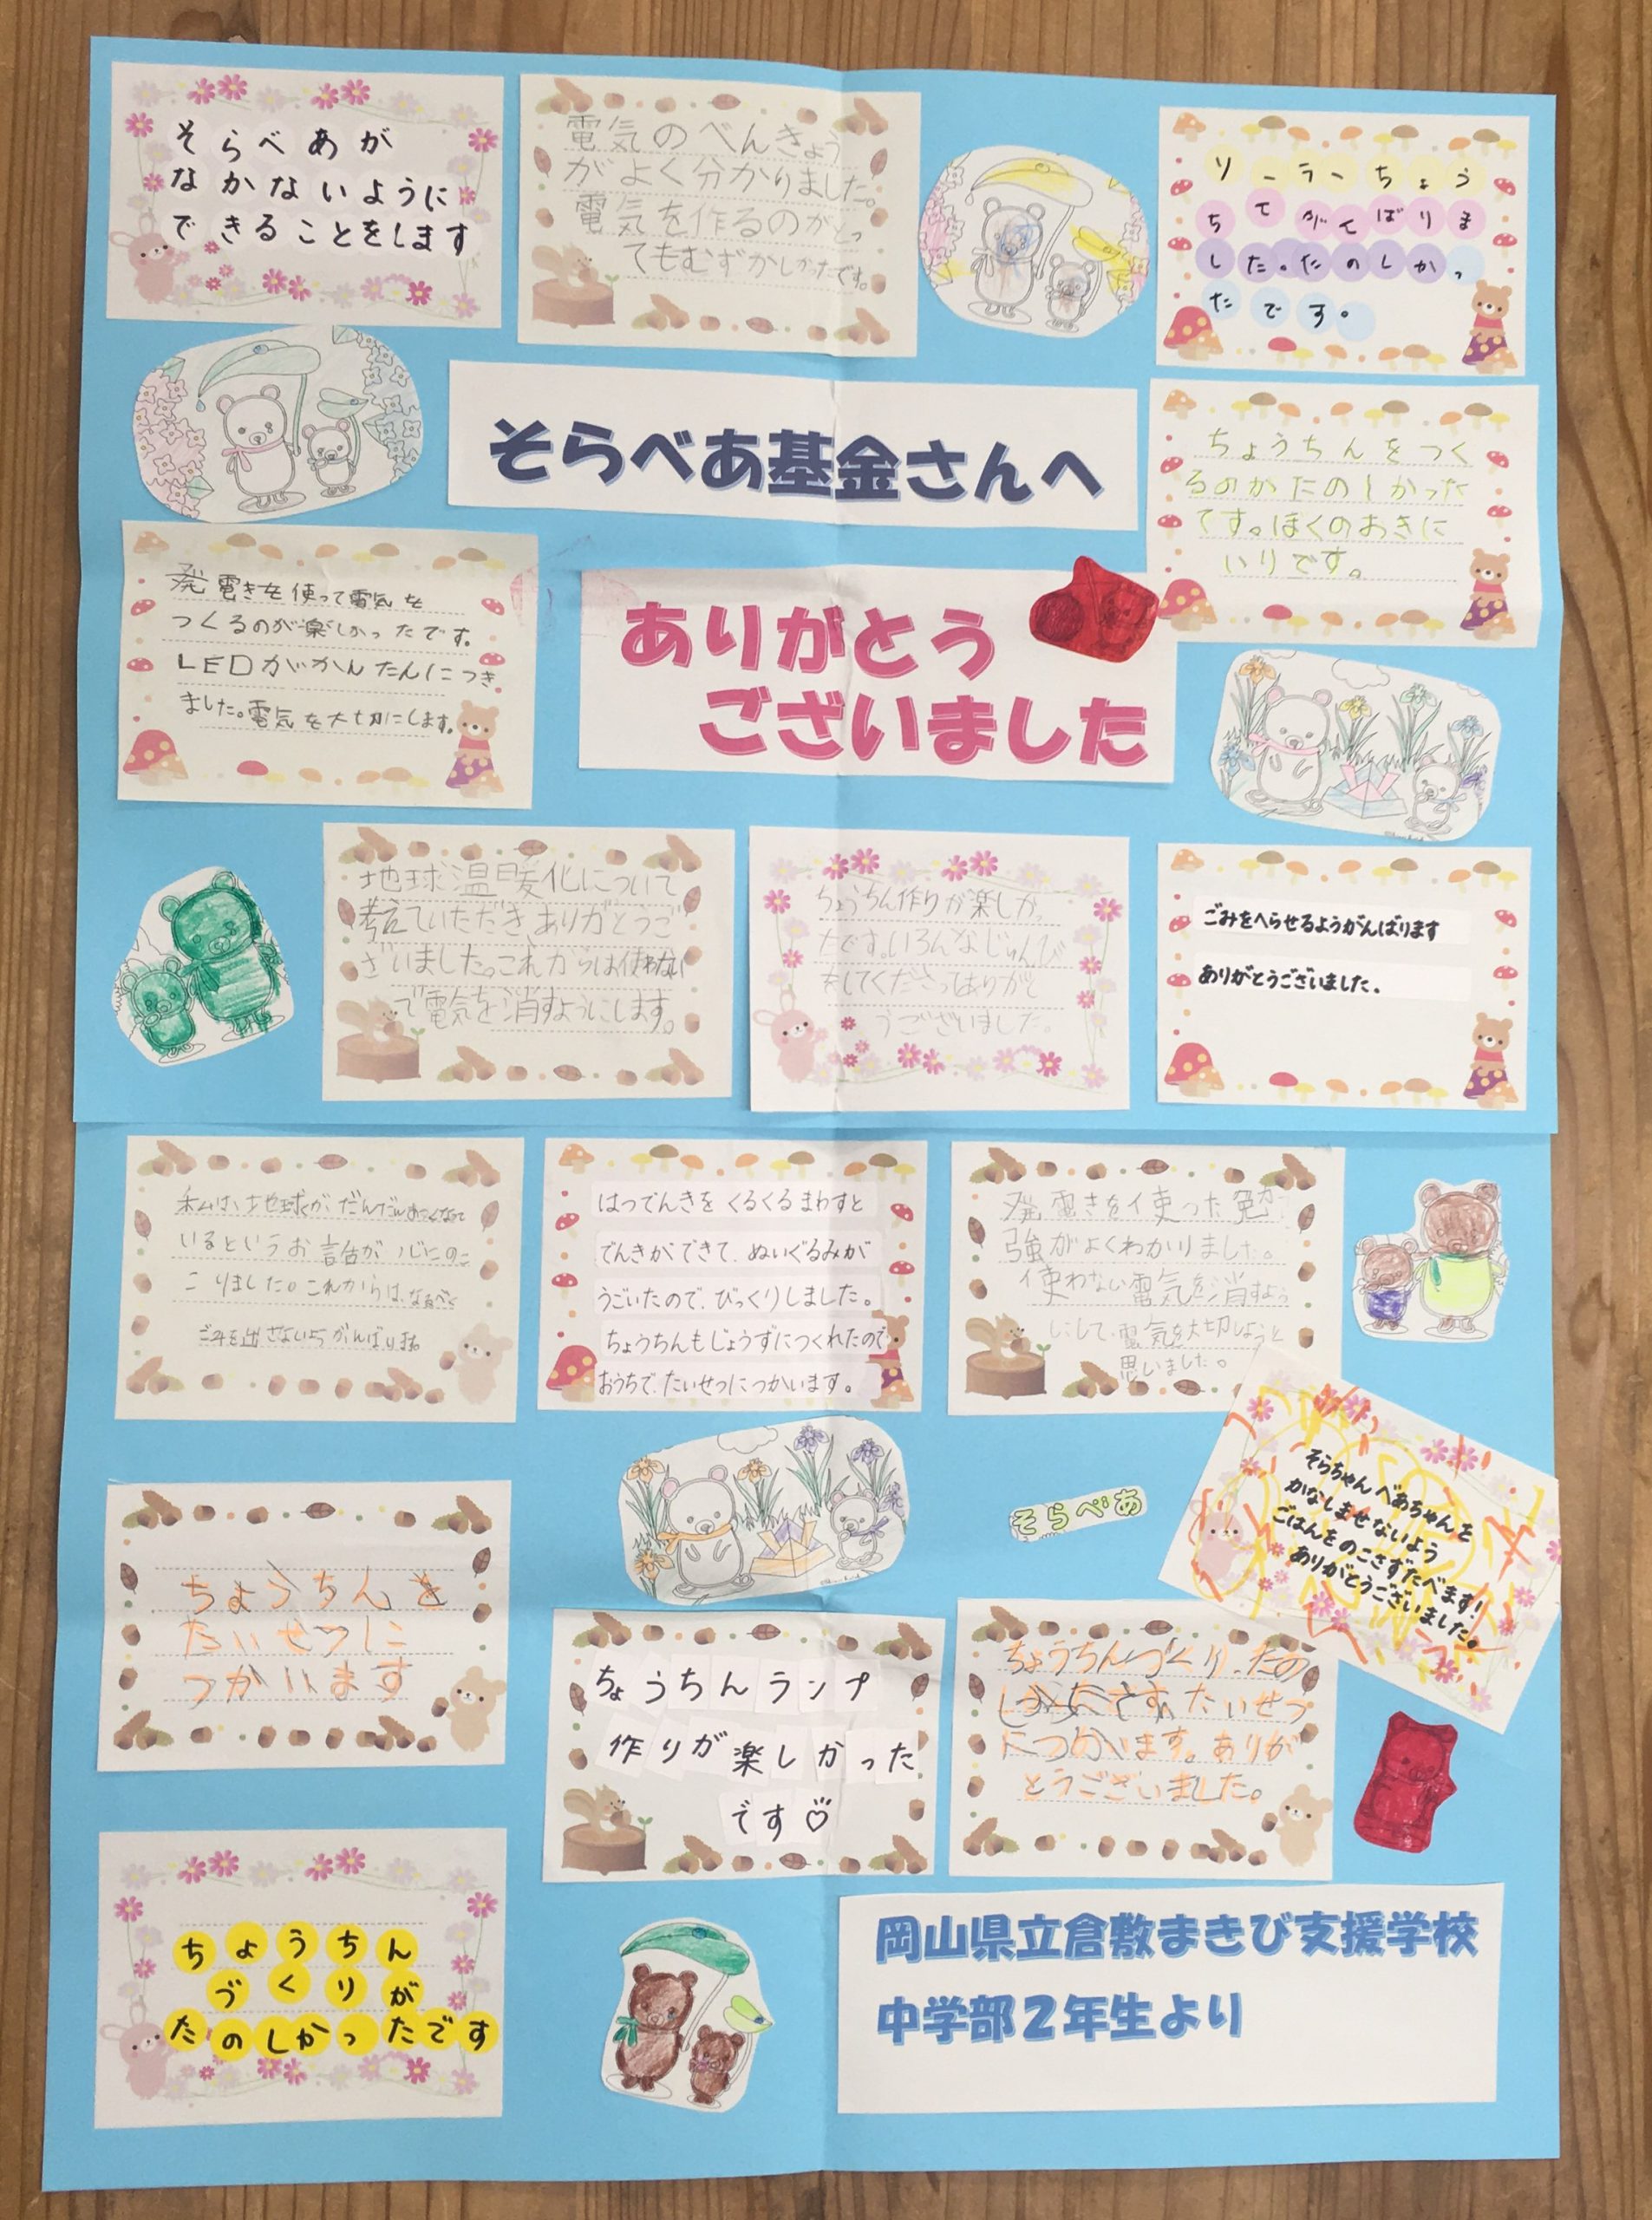 そらべあが
なかないように
できることをします
電気のべんきょう
がよく分かりました。
電気を作るのがとっ
てもむずかしかったです。
ソーラーちょう
ちん
がんばりま
した。たのしかっ
たです。
そらべあ基金さんへ
ちょうちんをつく
るのがたのしかった
です。ぼくのおきに
いりです。
発電きを使って電気を
つくるのが楽しかったです。
LEDがかんたんにつき
ました。電気を大切にします。
ありがとう
ございました
地球温暖化について
考えていただきありがとうご
ざいました。これからは使わない
で電気を消すようにします。
ちょうちん作りが楽しかっ
たです。いろんなじゅんび
をしてくださってありがと
うございました。
ごみをへらせるようがんばります
ありがとうございました。
私は、地球がだんだんあつくなって
いるというお話が心にのこ
こりました。これからは、なるべく
ごみを出さないようがんばります。
はつでんきをくるくるまわすと
でんきができて、ぬいぐるみが
うごいたので、びっくりしました。
ちょうちんもじょうずにつくれたので
おうちで、たいせつにつかいます。
発電きを使った勉
強がよくわかりました。
使わない電気を消すよう
にして、電気を大切しようと
思いました。
そらべあ
そらちゃんべあちゃんを
かなしませないよう
ごはんをのこさずたべます!
ありがとうございました。
ちょうちんを
たいせつに
つかいます
ちょうちんランプ
作りが楽しかった
です♡
ちょうちんづくり、たの
しかったです。たいせつ
につかいます。ありが
とうございました。
ちょうちん
づくりが
たのしかったです
岡山県立倉敷まきび支援学校
中学部2年生より